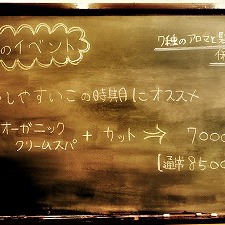 のイベント
7種のアロマと
しやすいこの時期にオススメ
オーガニック
クリームスパ + カット ⇒ 7000
[通常 8500